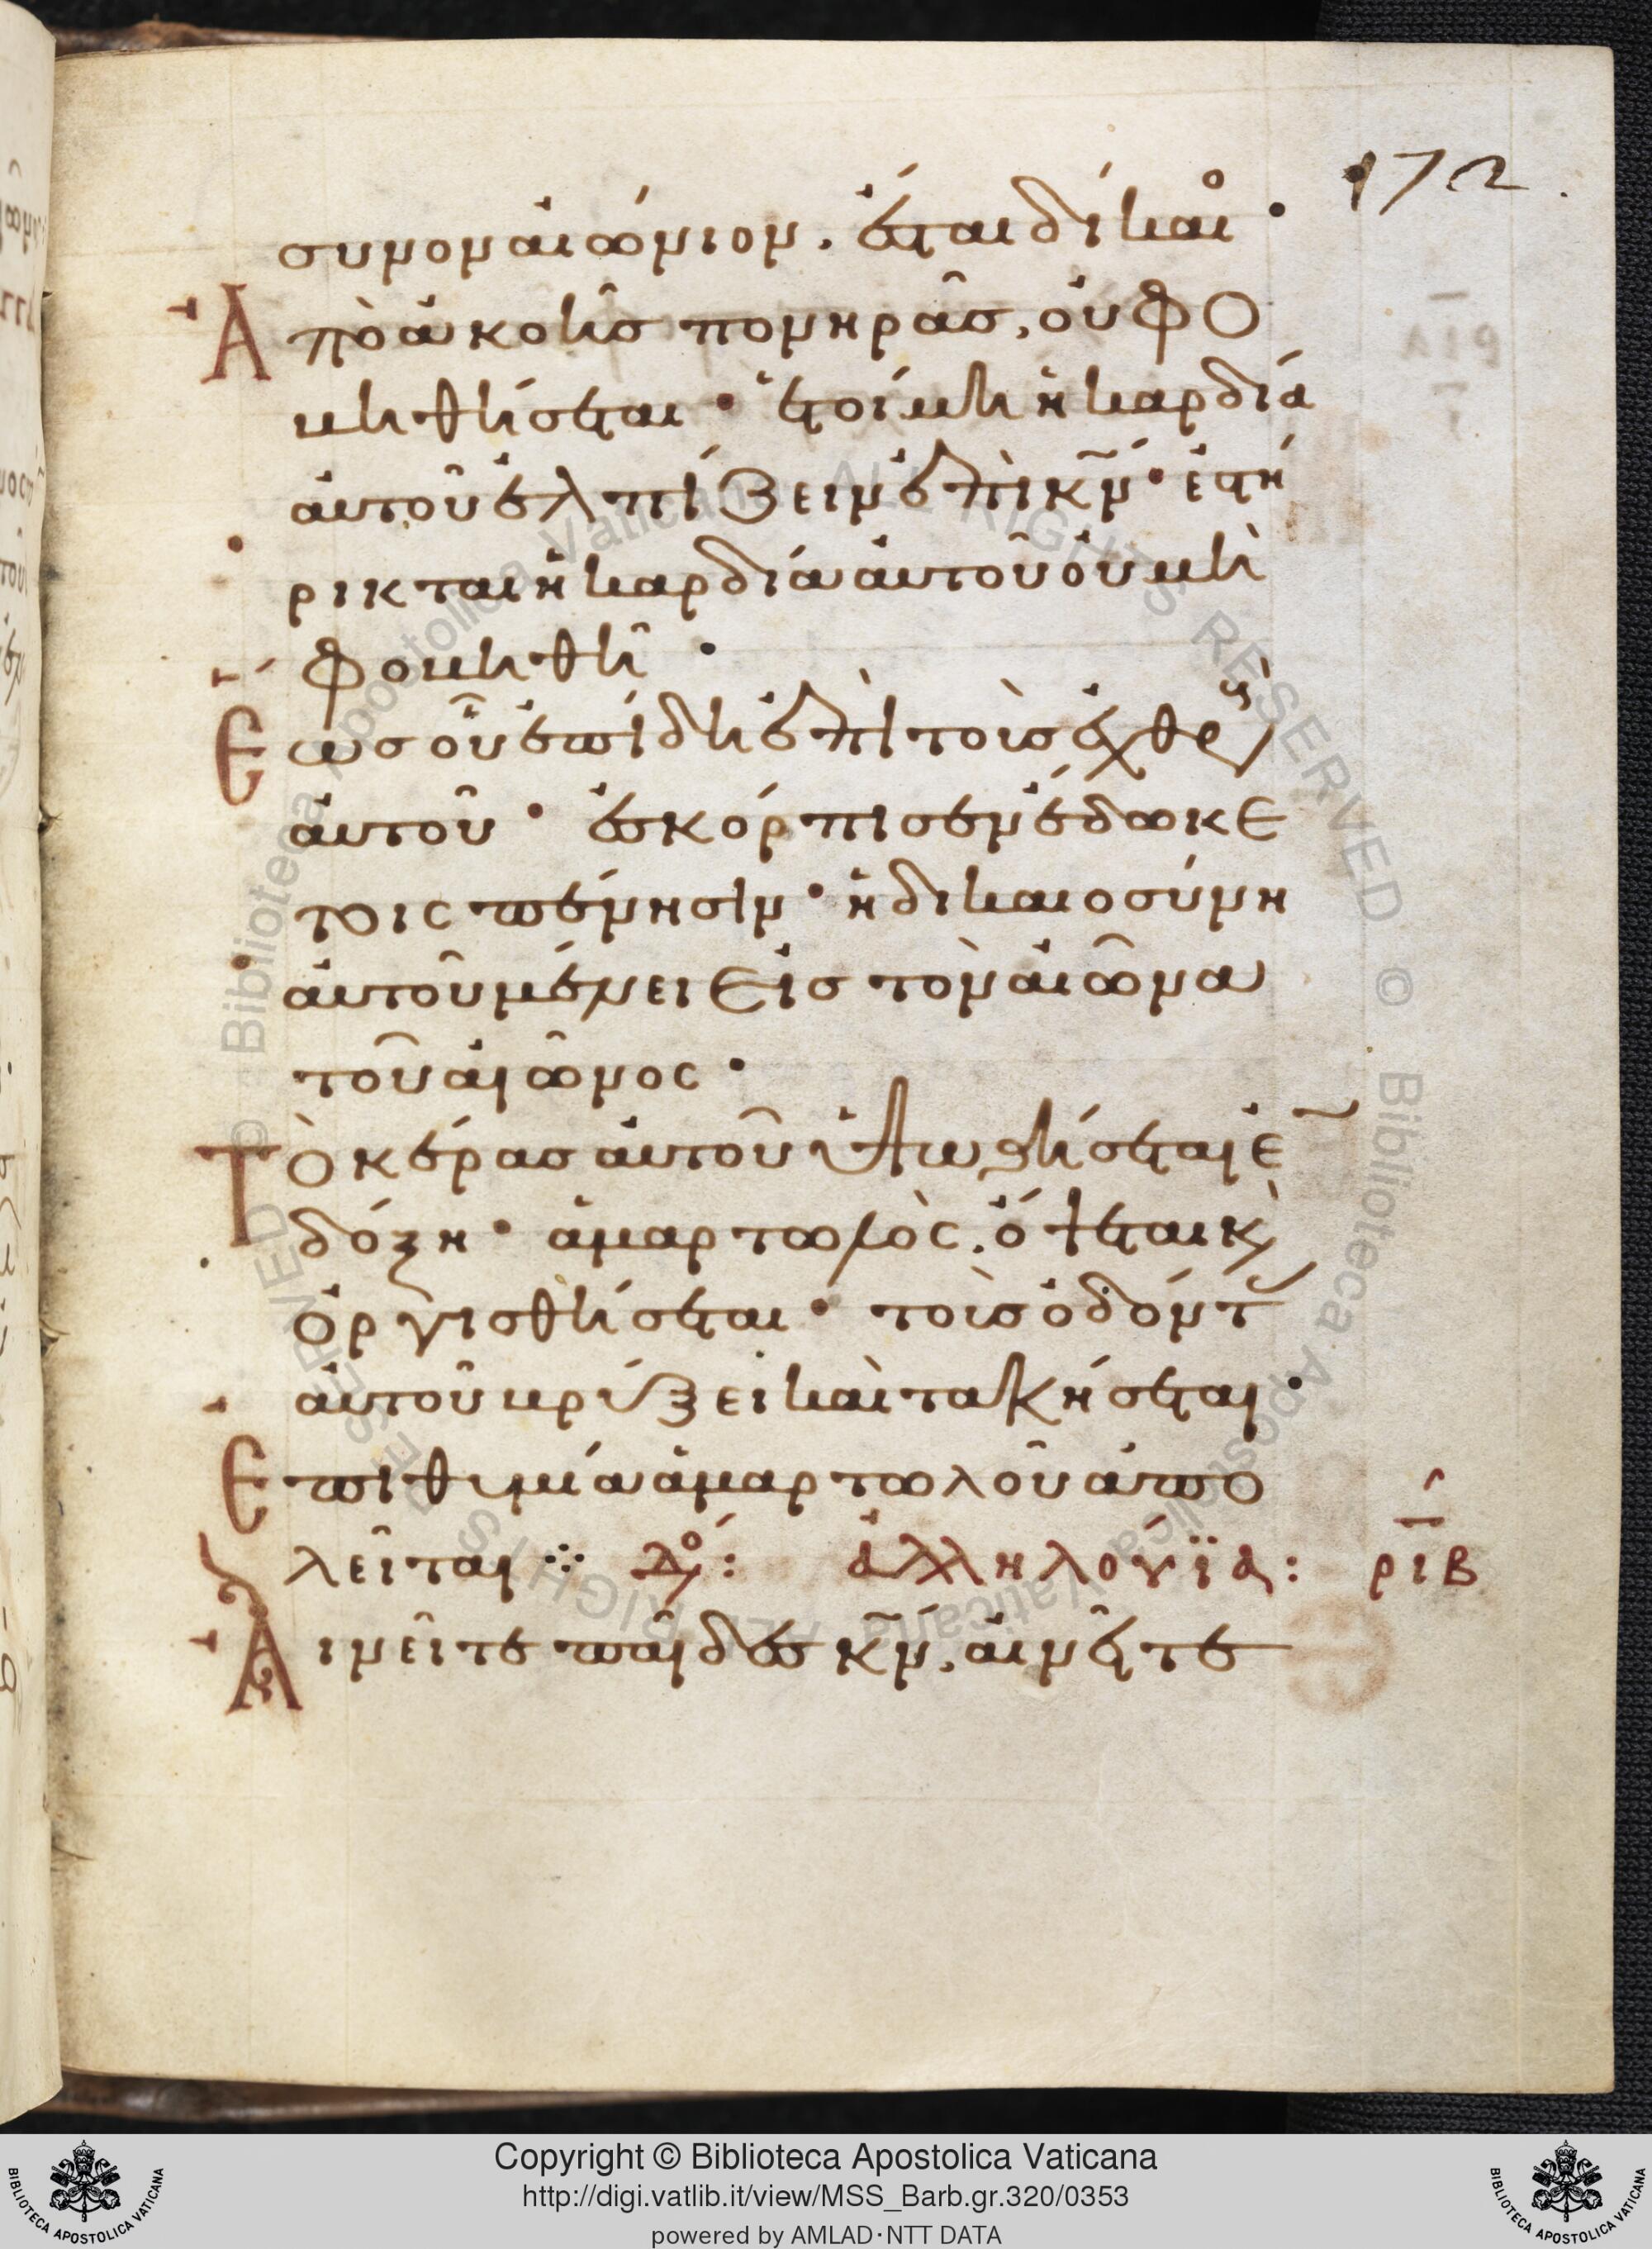 172.
συνον αἰώνιον. ἔσται δίκαιο·
Ἀπὸ ἀκοῆς πονηρᾶς, οὐ φο
βηθήσεται· ἑτοίμη ἡ καρδία
αὐτοῦ ἐλπίζειν ἐπὶ κν̄· ἐστή
ρικται ἡ καρδία αὐτοῦ οὐ μὴ
φοβηθῆ·
Ἕως οὗ ἐπίδη ἐπὶ τοὺς ἐχθροὺς
αὐτοῦ· ἐσκόρπισεν ἔδωκε
τοις πένησιν· ἡ δικαιοσύνη
αὐτοῦ μένει εἰς τὸν αἰῶνα
τοῦ αἰῶνος·
Τὸ κέρας αὐτοῦ ὑψωθήσεται ἐ̄
δόξη· ἁμαρτωλὸς. ὄψεται κὶ
ὀργισθήσεται· τοὺς ὀδόντ
αὐτοῦ βρύξει καὶ τακήσεται·
Ἐπιθυμία ἁμαρτωλοῦ ἀπο
λεῖται ⁘ Δο: ἀλληλούϊα: ριβ
Αἰνεῖτε παῖδες κν̄, αἰνεῖτε
Copyright © Biblioteca Apostolica Vaticana
http://digi.vatlib.it/view/MSS_Barb.gr.320/0353
powered by AMLAD·NTT DATA
BIBLIOTECA APOSTOLICA VATICANA
BIBLIOTECA APOSTOLICA VATICANA